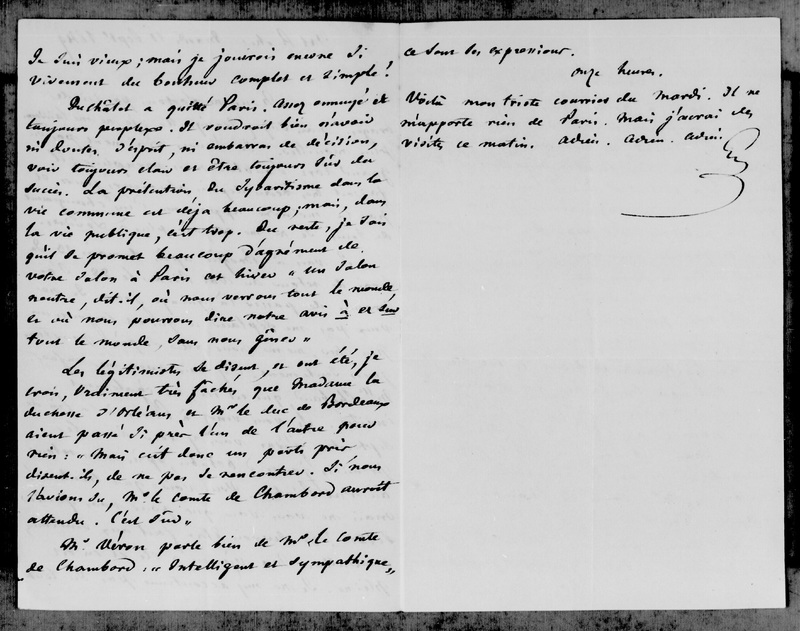 Je suis vieux ; mais je jouirois encore si
vivement du bonheur complet et simple !
Duchâtel a quitté Paris. Assez ennuyé et
toujours perplexe. Il voudroit bien n'avoir
ni doutes d'esprit, ni embarras de décision,
voir toujours clair et être toujours sûr du
succès. La prétention du Sybaritisme dans la
vie commune est déja beaucoup ; mais, dans
la vie publique, c'est trop. Du reste, je sais
qu'il se promet beaucoup d'agrément de
votre salon à Paris cet hiver « un salon
neutre, dit-il, où nous verrons tout le monde,
et où nous pourrons dire notre avis à et sur
tout le monde, sans nous gêner »
Les légitimistes se disent, et ont été, je
crois, vraiment très fachés que Madame la
duchesse d'Orléans et Mr le duc de Bordeaux
aient passé si près l'un de l'autre pour
rien : « Mais c'est donc un parti pris
disent-ils, de ne pas se rencontrer. Si nous
l'avions su, Mr le comte de Chambord auroit
attendu. C'est sûr »
Mr. Véron parle bien de Mr le comte
de Chambord : « Intelligent et sympathique »
ce sont ses expressions.
onze heures.
Voilà mon triste courrier du mardi. Il ne
m'apporte rien de Paris. Mais j'aurai des
visites ce matin. Adieu. Adieu. Adieu.